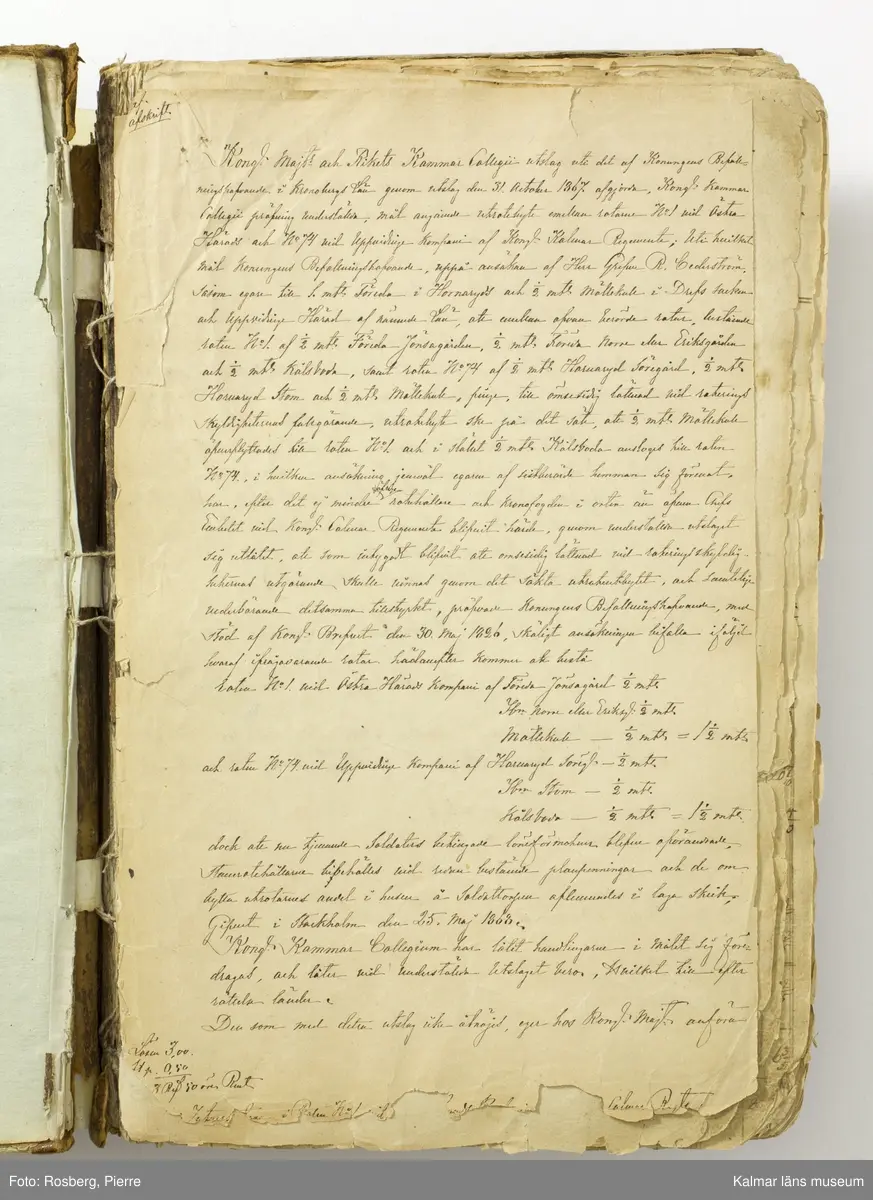 afskrift.
Kongl. Majts och Rikets Kammar Collegii utslag uti det af Konungens Befall-
ningshafvande i Kronobergs Län genom utslag den 31 October 1867 afgjorda, Kongl. Kammar
Collegii pröfning underställda, mål angående utrotebyte emellan rotarne No 1 vid Östra
Härads och No 74 vid Uppvidinge Kompani af Kongl. Kalmar Regemente; Uti hvilket
mål Konungens Befallningshafvande, uppå ansökan af Herr Grefve R. Cederström,
såsom egare till 1. mtl Föreda i Hornaryds och ½ mtl Mållekulle i Drefs socken
och Uppvidinge Härad af nämnde Län, att emellan ofvan berörde rotar, bestående
roten No 1. af ½ mtl Föreda Jönsagården, ½ mtl Föreda Norre eller Eriksgården
och ½ mtl Kålsboda, samt roten No 74 af ½ mtl Hornaryd Söregård, ½ mtl
Hornaryd Stom och ½ mtl Mållekulle, finge, till ömsesidig lättnad vid roterings
skyldighetens fullgörande, utrotebyte ske på det sätt, att ½ mtl Mållekulle
öfverflyttades till roten No 1. och i stället ½ mtl Kålsboda anslogs till roten
No 74, i hvilken ansökning jemväl egaren af sistberörde hemman sig förenat,
har, efter det ej mindre öfrige rotehållare och kronofogden i orten än äfven Chefs
Embetet vid Kongl. Calmar Regemente blifvit hörde, genom underställda utslaget
sig utlåtit, att som utbytet blifvit att ömsesidig lättnad vid roteringsskyldig-
heternas utgörande skulle vinnas genom det sökta utrotebytet, och samtelige
vederbörande detsamma tillstyrkt, pröfvade Konungens Befallningshafvande, med
stöd af Kongl. Brefvet den 30. Maj 1826, skäligt ansökningen bifalla i följd
hvaraf ifrågavarande rotar hädanefter kommer att bestå
roten No 1. vid Östra Härads Kompani af Föreda Jönsagård ½ mtl.
Norre eller Eriksg. ½ mtl.
Mållekulle — ½ mtl = 1½ mtl.
och roten No 74 vid Uppvidinge Kompani af Hornaryd Söreg. — ½ mtl.
Stom — ½ mtl.
Kålsboda — ½ mtl = 1½ mtl.
dock att nu tjenande Soldaters betingade löneförmoner blifva oförändrade,
bibehålles vid redan bestående planpenningar och de om-
bytta utrotarnes andel i husen å Soldattorpen aflemnades i laga skick.
Gifvet i Stockholm den 25. Maj 1868.
Kongl. Kammar Collegium har låtit handlingarne i målet sig före-
dragas, och låter vid underställda Utslaget bero, Hvilket till efter
rättelse länder.
Den som med detta utslag icke åtnöjes, eger hos Kongl. Majt anföra
Lösen 3,00.
0,50
50 öre Rmt.
Roten No 1
Calmar
Foto: Rosberg, Pierre
Kalmar läns museum